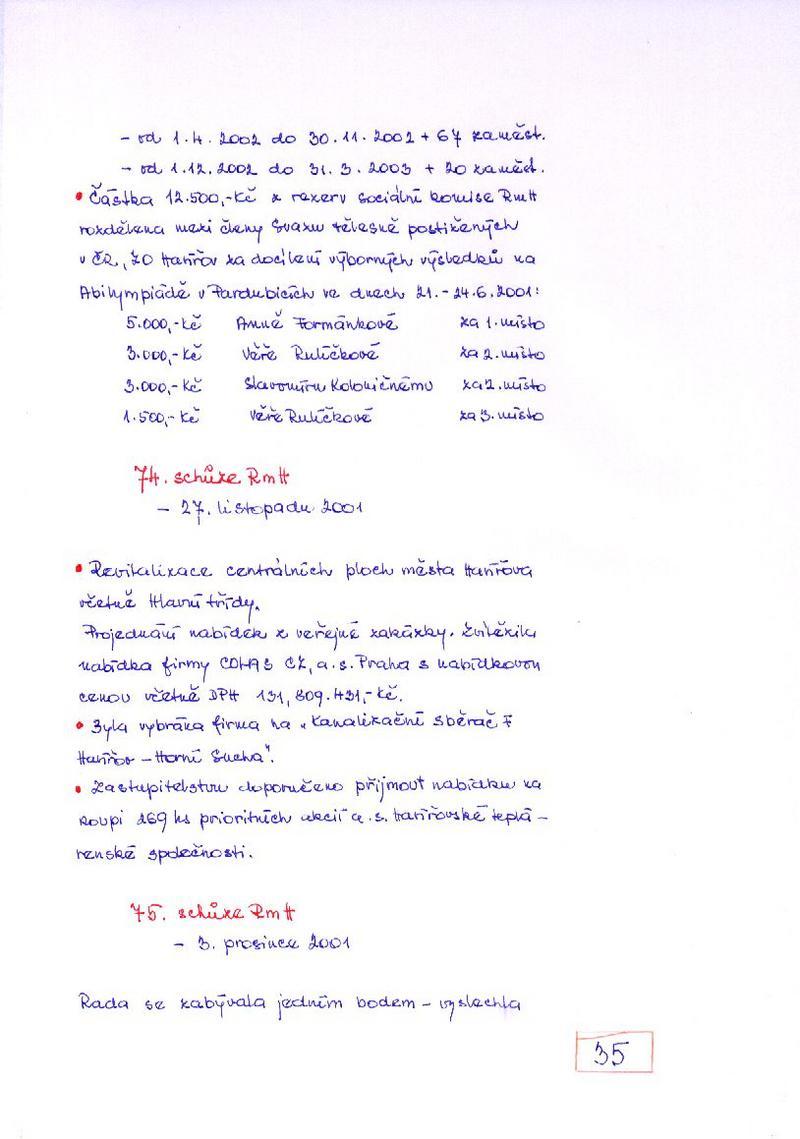 - od 1.4. 2002 do 30.11.2002 + 67 zaměst.
- od 1.12.2002 do 31.3.2003 + 20 zaměst.
• Částka 12.500,-Kč z rezerv sociální komise RmH
rozdělena mezi členy Svazu tělesně postižených
v ČR, ZO Havířov za docílení výborných výsledků na
Abilympiádě v Pardubicích ve dnech 21.-24.6.2001:
5.000,-Kč Anně Formánkové za 1. místo
3.000,-Kč Věře Ruličkové za 2. místo
3.000,-Kč Slavomíru Kolovičnému za 2. místo
1.500,-Kč Věře Ruličkové za 3. místo
74. schůze RmH
- 27. listopadu 2001
• Revitalizace centrálních ploch města Havířova
včetně Hlavní třídy.
Projednání nabídek z veřejné zakázky. Zvítězila
nabídka firmy CZ, a.s. Praha s nabídkovou
cenou včetně DPH 131,809.431,-Kč.
• Byla vybrána firma na „Kanalizační sběrač F
Havířov - Horní Suchá".
• Zastupitelstvu doporučeno přijmout nabídku na
koupi 269 ks prioritních akcií a.s. Havířovské teplá-
renské společnosti.
75. schůze RmH
- 3. prosince 2001
Rada se zabývala jedním bodem - vyslechla
35